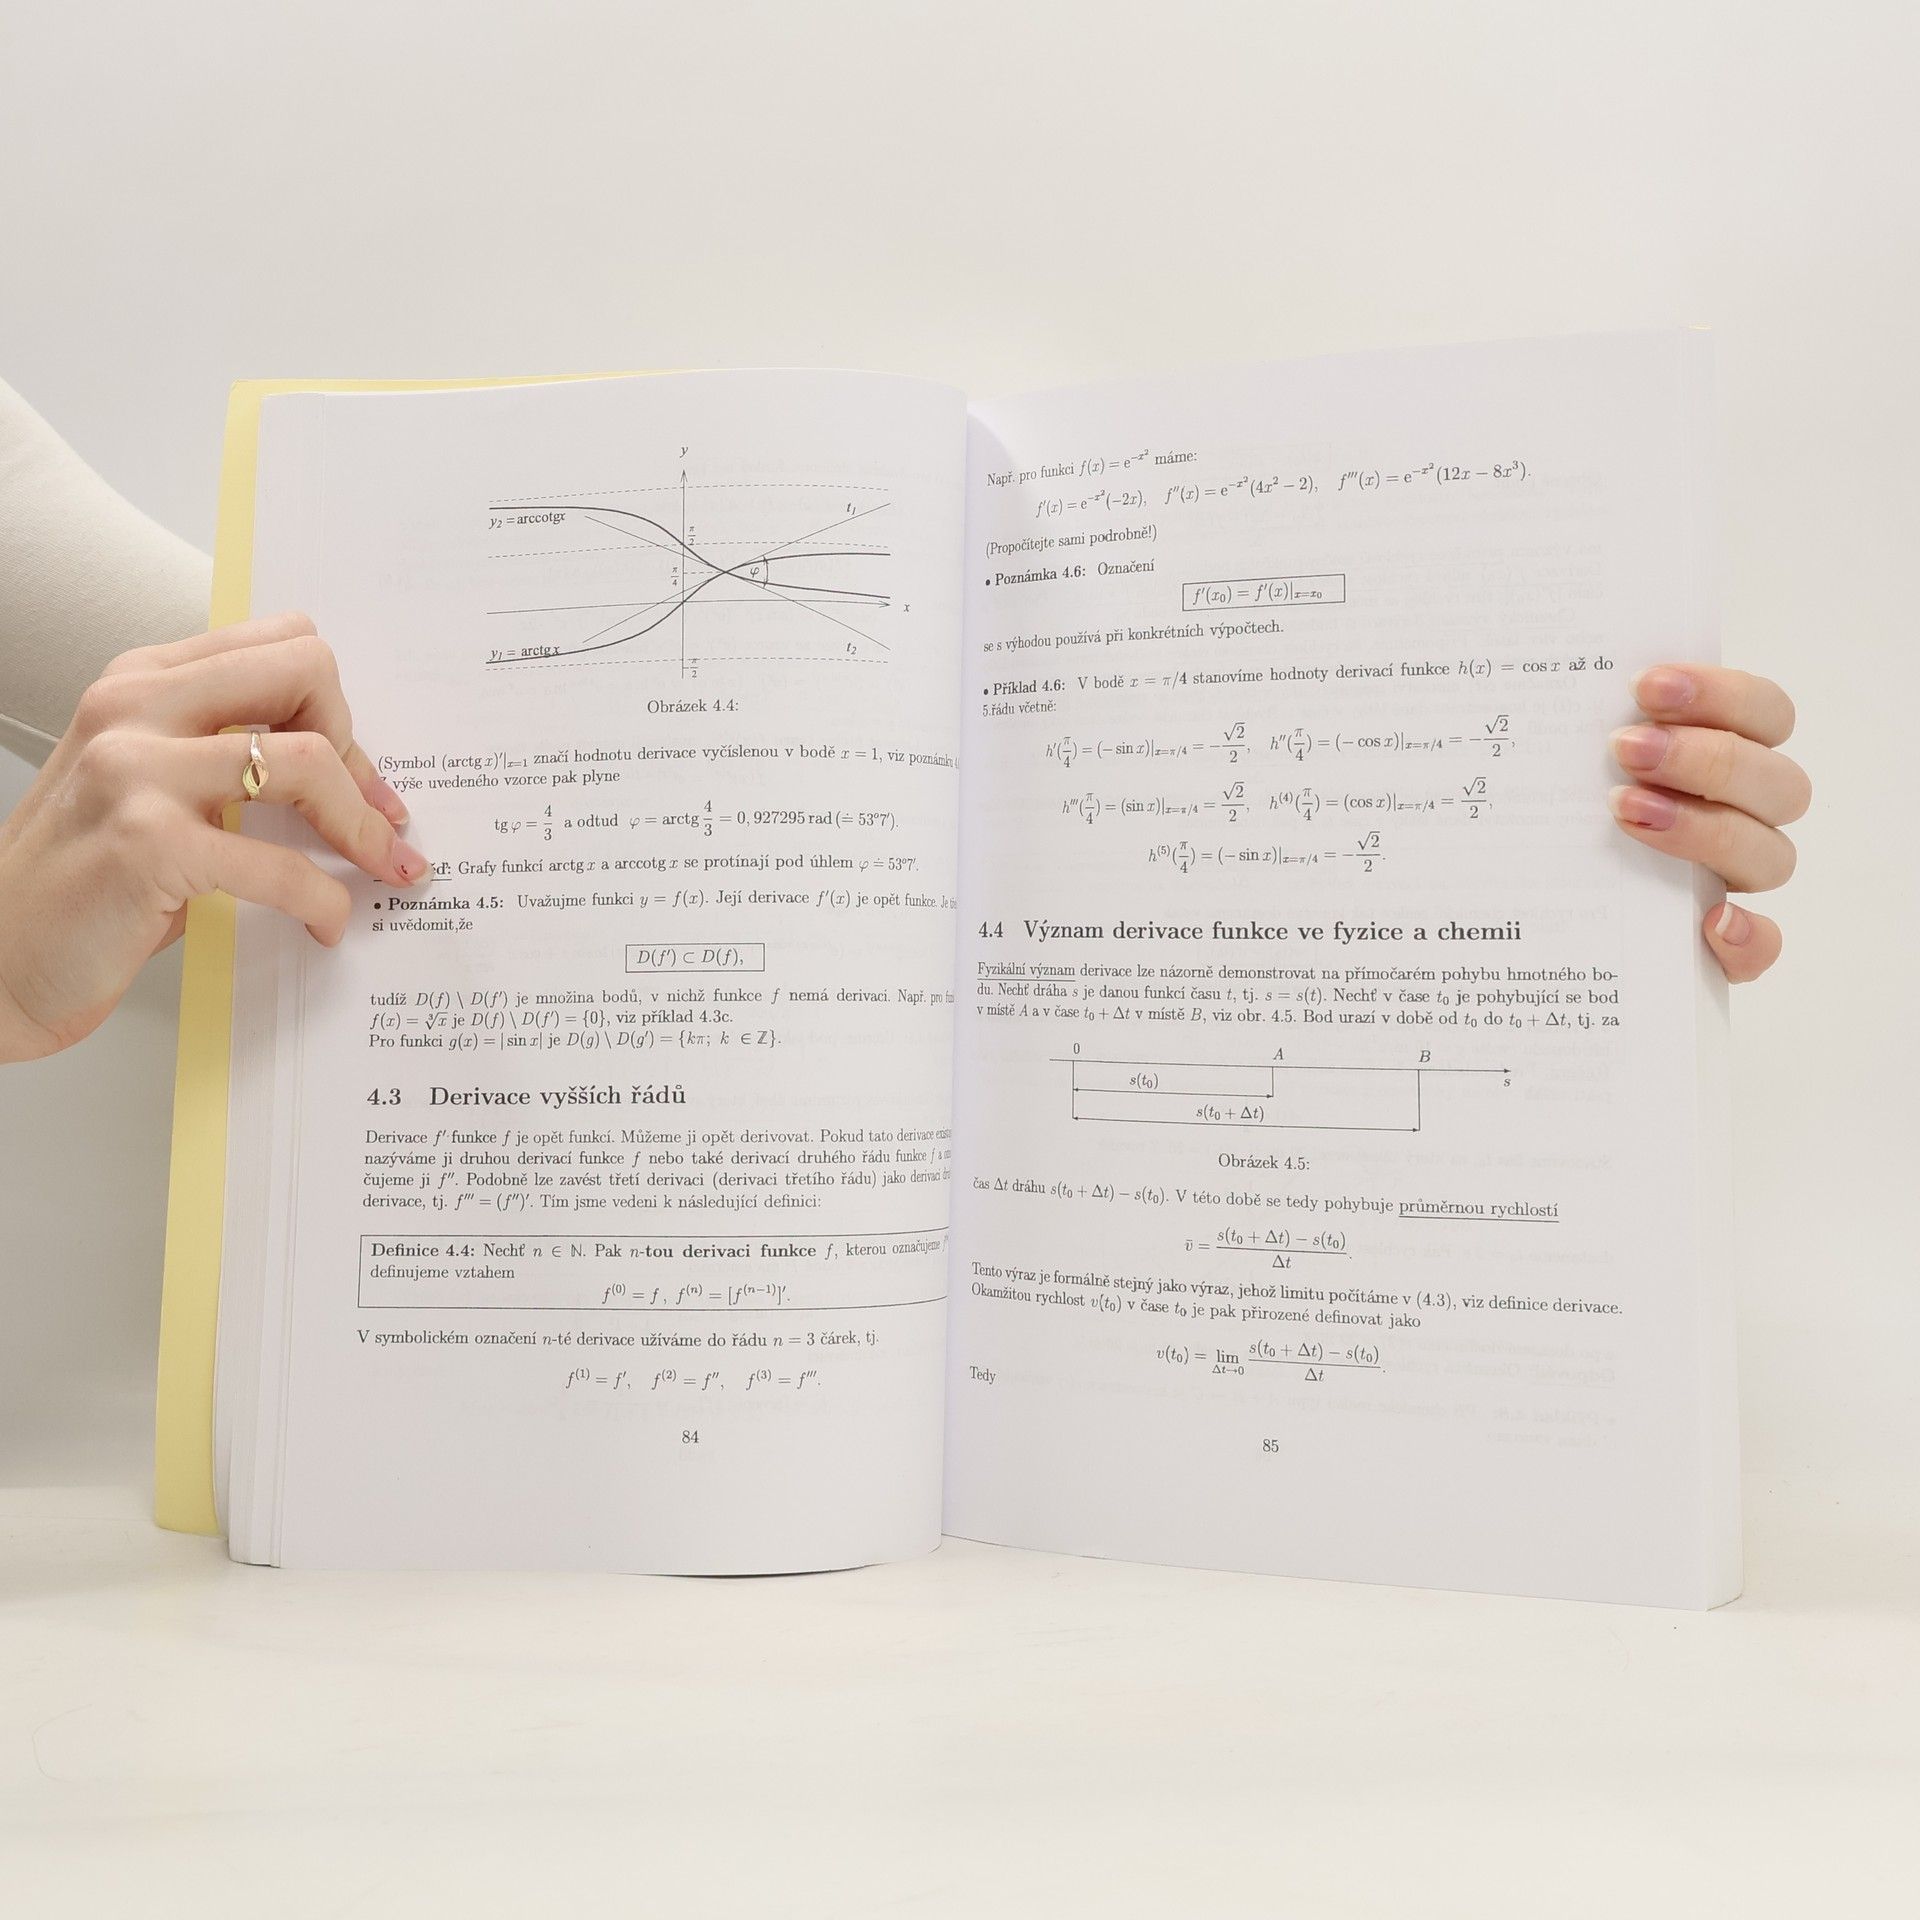 y
y₂ = arccotgx
t₁
π/2
π/4
φ
x
y₁ = arctgx
t₂
-π/2
Obrázek 4.4:
(Symbol (arctg x)'|ₓ₌₁ značí hodnotu derivace vyčíslenou v bodě x = 1, viz poznámku
výše uvedeného vzorce pak plyne
tg φ = 4/3 a odtud φ = arctg 4/3 = 0,927295 rad (≐ 53°7′).
Grafy funkcí arctg x a arccotg x se protínají pod úhlem φ ≐ 53°7′.
• Poznámka 4.5: Uvažujme funkci y = f(x). Její derivace f′(x) je opět funkce. Je
si uvědomit,že
D(f′) ⊂ D(f),
tudíž D(f) \ D(f′) je množina bodů, v nichž funkce f nemá derivaci. Např. pro
f(x) = ∛x je D(f) \ D(f′) = {0}, viz příklad 4.3c.
Pro funkci g(x) = | sin x| je D(g) \ D(g′) = {kπ; k ∈ ℤ}.
4.3 Derivace vyšších řádů
Derivace f′ funkce f je opět funkcí. Můžeme ji opět derivovat. Pokud tato derivace
nazýváme ji druhou derivací funkce f nebo také derivací druhého řádu funkce f a
čujeme ji f″. Podobně lze zavést třetí derivaci (derivaci třetího řádu) jako derivaci
derivace, tj. f‴ = (f″)′. Tím jsme vedeni k následující definici:
Definice 4.4: Nechť n ∈ ℕ. Pak n-tou derivaci funkce f, kterou označujeme
definujeme vztahem
f⁽⁰⁾ = f , f⁽ⁿ⁾ = [f⁽ⁿ⁻¹⁾]′.
V symbolickém označení n-té derivace užíváme do řádu n = 3 čárek, tj.
f⁽¹⁾ = f′, f⁽²⁾ = f″, f⁽³⁾ = f‴.
84
Např. pro funkci f(x) = e^(−x²) máme:
f′(x) = e^(−x²)(−2x), f″(x) = e^(−x²)(4x² − 2), f‴(x) = e^(−x²)(12x − 8x³).
(Propočítejte sami podrobně!)
• Poznámka 4.6: Označení
f′(x₀) = f′(x)|ₓ₌ₓ₀
se s výhodou používá při konkrétních výpočtech.
• Příklad 4.6: V bodě x = π/4 stanovíme hodnoty derivací funkce h(x) = cos x až do
5.řádu včetně:
h′(π/4) = (− sin x)|ₓ₌π/4 = −√2/2, h″(π/4) = (− cos x)|ₓ₌π/4 = −√2/2,
h‴(π/4) = (sin x)|ₓ₌π/4 = √2/2, h⁽⁴⁾(π/4) = (cos x)|ₓ₌π/4 = √2/2,
h⁽⁵⁾(π/4) = (− sin x)|ₓ₌π/4 = −√2/2.
4.4 Význam derivace funkce ve fyzice a chemii
Fyzikální význam derivace lze názorně demonstrovat na přímočarém pohybu hmotného bo-
du. Nechť dráha s je danou funkcí času t, tj. s = s(t). Nechť v čase t₀ je pohybující se bod
v místě A a v čase t₀ + Δt v místě B, viz obr. 4.5. Bod urazí v době od t₀ do t₀ + Δt, tj. za
0 A B
s(t₀) s
s(t₀ + Δt)
Obrázek 4.5:
čas Δt dráhu s(t₀ + Δt) − s(t₀). V této době se tedy pohybuje průměrnou rychlostí
v̄ = (s(t₀ + Δt) − s(t₀))/Δt.
Tento výraz je formálně stejný jako výraz, jehož limitu počítáme v (4.3), viz definice derivace.
Okamžitou rychlost v(t₀) v čase t₀ je pak přirozené definovat jako
v(t₀) = lim_(Δt→0) (s(t₀ + Δt) − s(t₀))/Δt.
Tedy
85